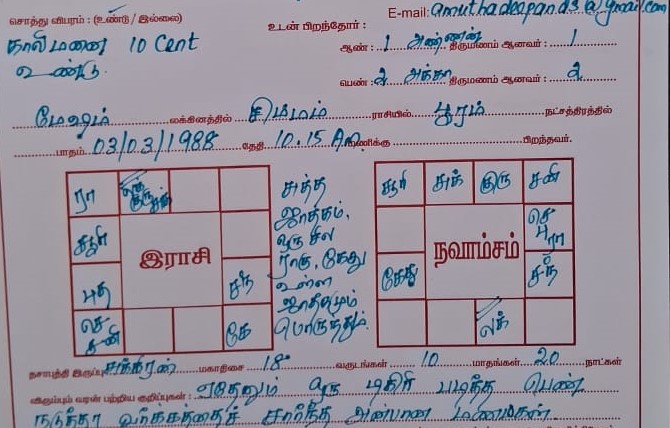 சொத்து விபரம் : (உண்டு / இல்லை) உடன் பிறந்தோர் : E-mail:
காலிமனை 10 Cent
உண்டு.
ஆண் : 1 அண்ணன் திருமணம் ஆனவர் : 1
பெண் : 2 அக்கா திருமணம் ஆனவர் : 2
மேஷம் லக்கினத்தில் சிம்மம் ராசியில் பூரம் நட்சத்திரத்தில்
பாதம் 03/03/1988 தேதி 10.15 A.m மணிக்கு பிறந்தவர்.
ரா குரு சுக்
சூரி
புத
செ சனி
சந்
கே
இராசி
சுத்த
ஜாதகம்,
ஒரு சில
ராகு, கேது
உள்ள
ஜாதகமும்
பொருந்தும்.
சூரி சுக் குரு சனி
செ
புரா
நவாம்சம்
கேது சந்
லக்
தசாபுத்தி இருப்பு சுக்கிரன் மகாதிசை 18 வருடங்கள் 10 மாதங்கள் 20 நாட்கள்
விரும்பும் வரன் பற்றிய குறிப்புகள் : ஏதேனும் ஒரு டிகிரி படித்த பெண்
நடுத்தர வர்க்கத்தைச் சார்ந்த அன்பான மணமகள்.